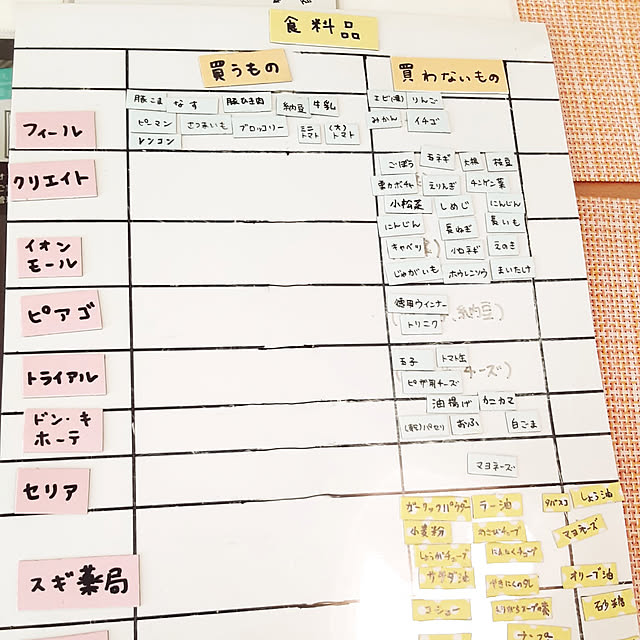 食料品
買うもの
買わないもの
豚こま なす 豚ひき肉 納豆 牛乳
ピーマン さつまいも ブロッコリー ミニトマト (大)トマト
レンコン
りんご
みかん イチゴ
フィール
ごぼう 玉ネギ 大根 枝豆
クリエイト
えりんぎ チンゲン菜
小松菜 しめじ にんじん
にんじん 長ねぎ 長いも
イオン
モール
キャベツ 小口ネギ えのき
じゃがいも ホウレンソウ まいたけ
ピアゴ
徳用ウインナー
トリニク
(納豆)
トライアル
玉子 トマト缶
ピザ用チーズ
チーズ)
油揚げ カニカマ
ドン・キ
ホーテ
パセリ おふ 白ごま
セリア
マヨネーズ
ガーリックパウダー ラー油 タバスコ しょう油
小麦粉 わさびチューブ マヨネーズ
しょうがチューブ にんにくチューブ
スギ薬局
サラダ油 やきにくのタレ オリーブ油
コショー 砂糖